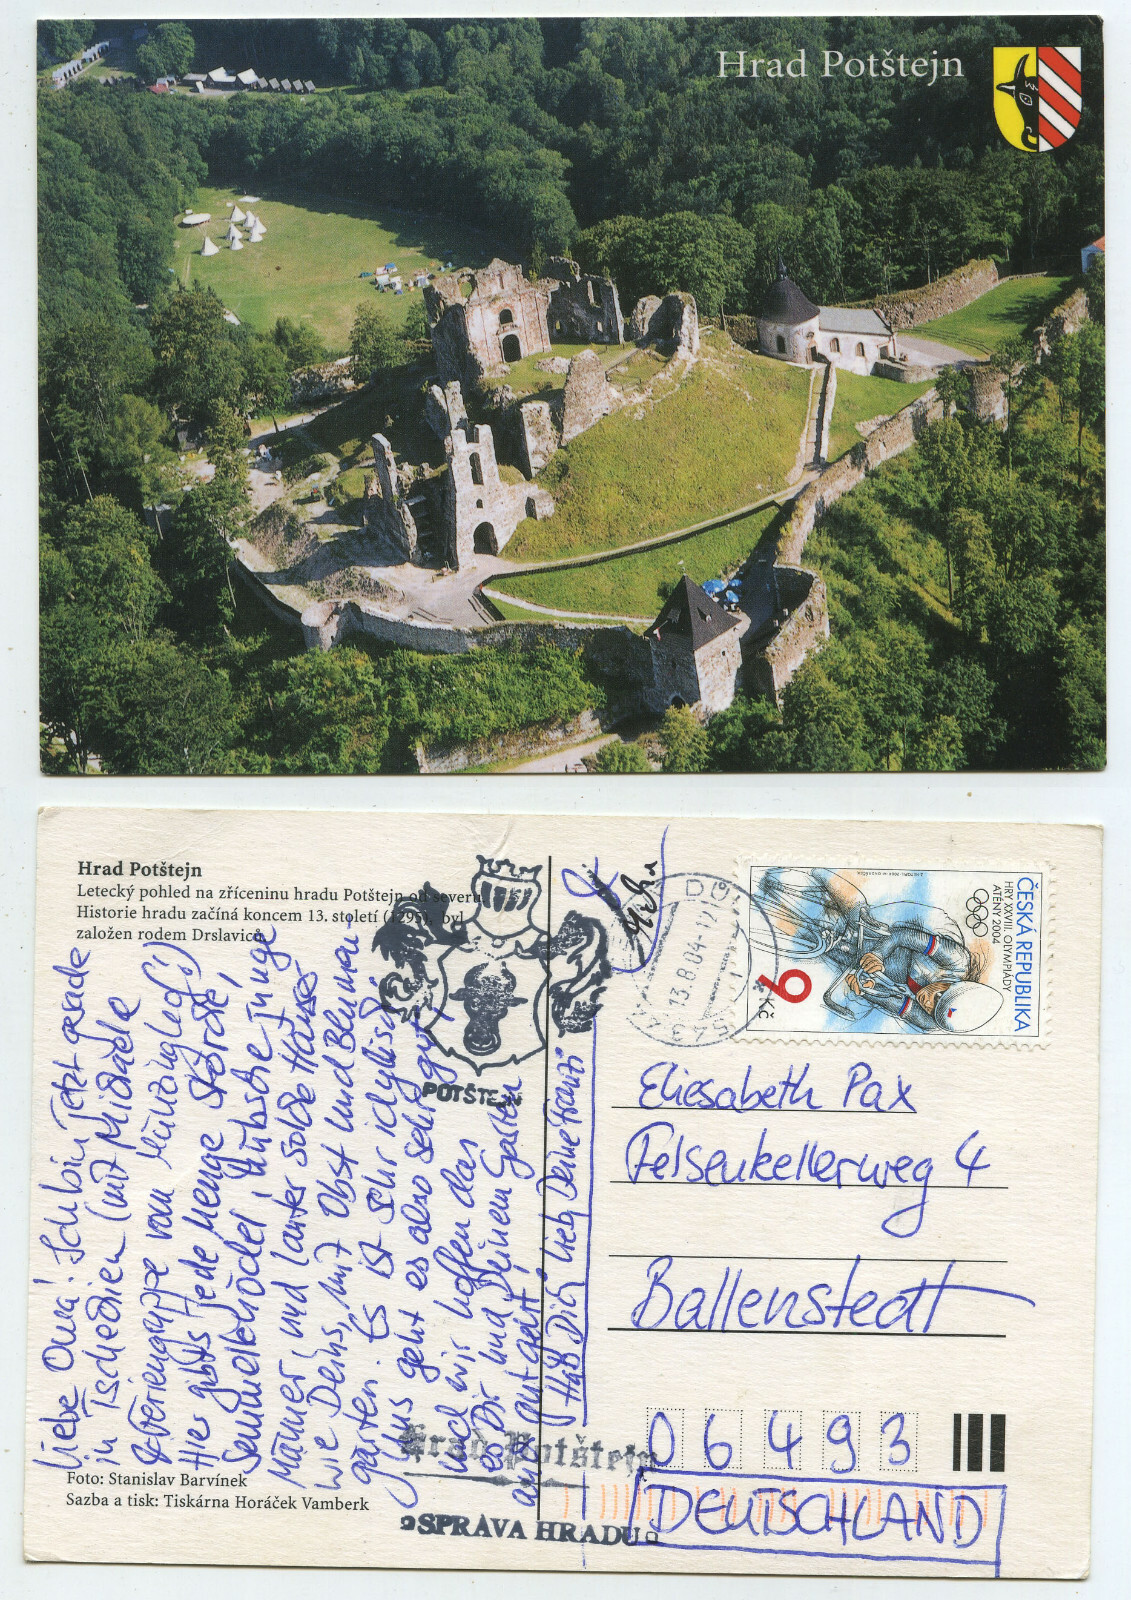 Hrad Potštejn
Hrad Potštejn
Letecký pohled na zříceninu hradu Potštejn od severu.
Historie hradu začíná koncem 13. století (1295), byl
založen rodem Drslaviců.
Liebe Oma! Ich bin jetzt grade
in Tschechien (mit Michaela
& Feriengruppe vom
Hier gibts jede Menge Störche,
Semmelknödel, hübsche junge
Männer und lauter solche Häuser
wie Deins, mit Obst und Blumen-
gärten. Es ist sehr idyllisch,
uns geht es also sehr gut
und wir hoffen das
es Dir und Deinem Garten
auch gut geht!
Hab Dich lieb, Deine Franzi
POTŠTEJN
13.8.04-12
543
ČESKÁ REPUBLIKA
HRY XXVIII. OLYMPIÁDY
ATÉNY 2004
6 Kč
Eliesabeth Pax
Felsenkellerweg 4
Ballenstedt
06493
DEUTSCHLAND
Hrad Potštejn
SPRÁVA HRADU
Foto: Stanislav Barvínek
Sazba a tisk: Tiskárna Horáček Vamberk